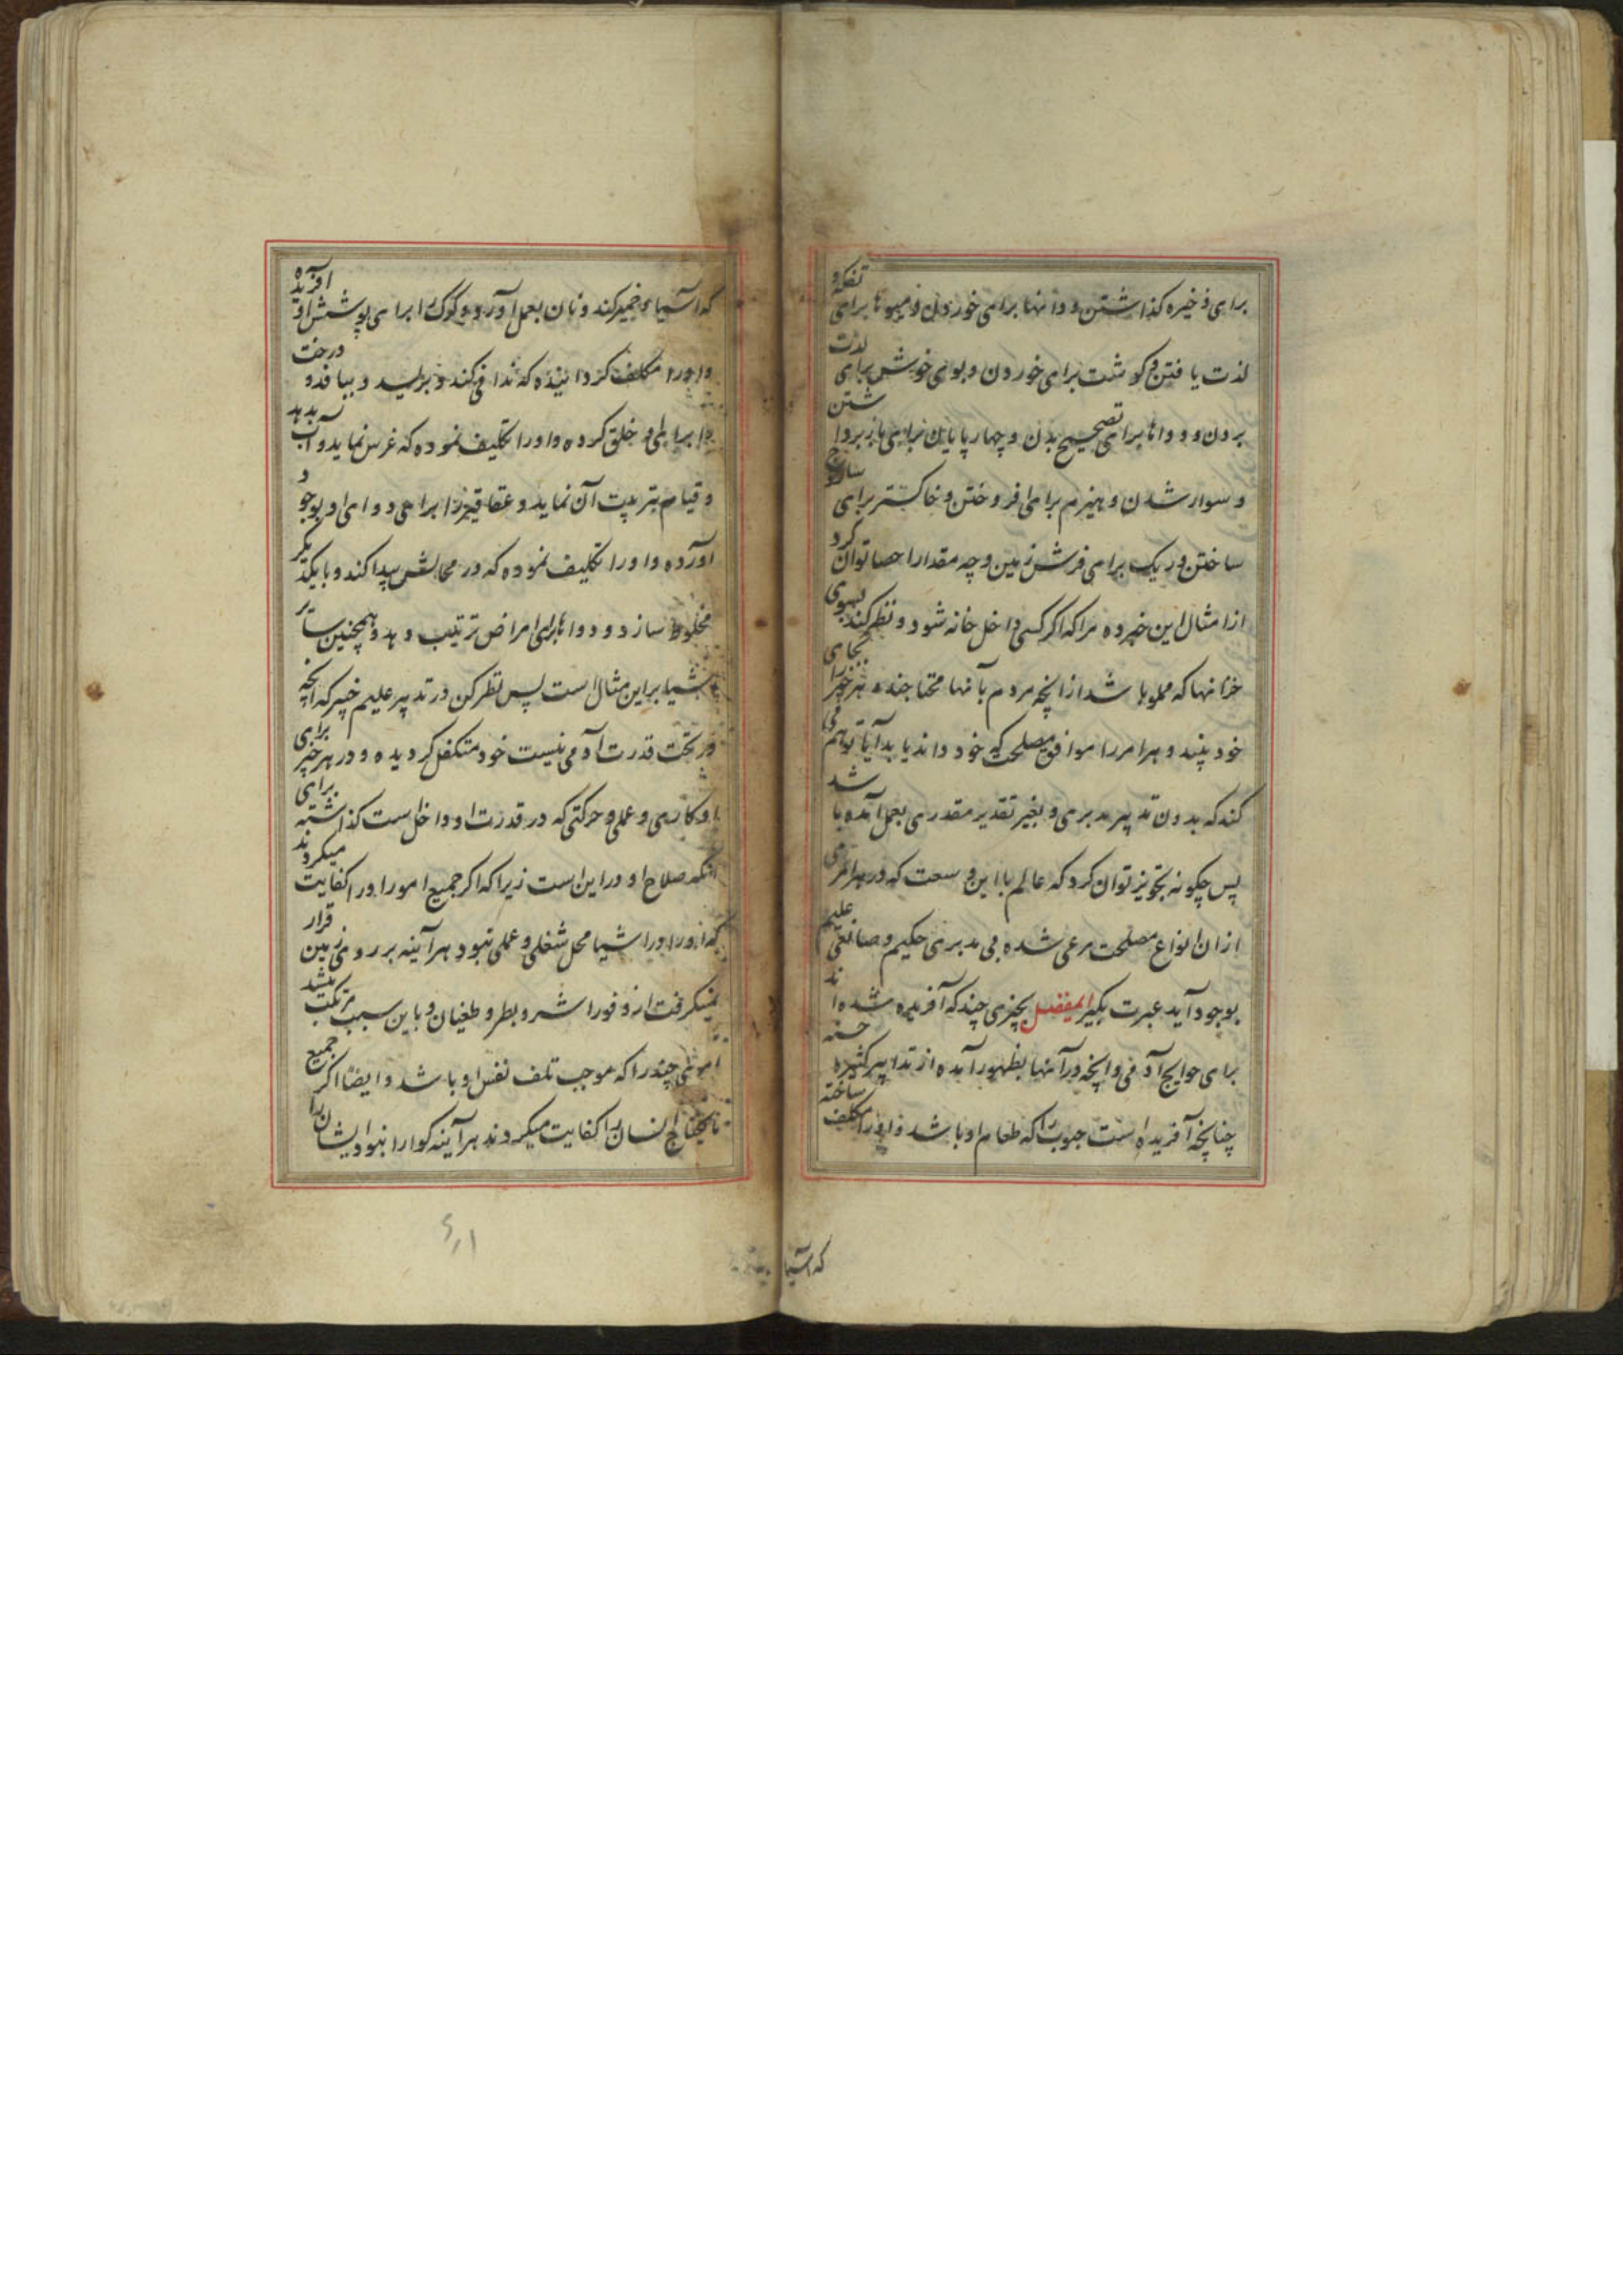 برای ذخیره کذاشتن و دانها برای خوردن و میوها برای تفکه و
لذت یافتن و کوشت برای خوردن و بوی خوش برای لذت
بردن و دواها برای تصحیح بدن و چهارپایان برای بار برداشتن
و سوار شدن و هیزم برای افروختن و خاکستر برای ساروج
ساختن و ریک برای فرش زمین و چه مقدار احصا توان کرد
از امثال این خیر و ه مرا که اکر کسی داخل خانه شود و نظر کند بسوی
خزانها که مملو باشد از انچه مردم بآنها محتاجند و هر چیز را بجای
خود بیند و هر امر را موافق مصلحتی که خود داند یابد آیا توهم می
کند که بدون تدبیر مدبری و بغیر تقدیر مقدری بعمل آمده باشد
پس چکونه تجویز توان کرد که عالم با این وسعت که در هر امری
ازان انواع مصلحت مرعی شده بی مدبری حکیم و صانعی علیم
بوجود آید عبرت بکیر ای مفضل بچیزی چند که آفریده شده اند
برای حوایج آدمی و انچه در آنها بظهور آمده از تدابیر کثیره حسنه
چنانچه آفریده است حبوب را که طعام او باشد و او را مکلف ساخته
که آسیا
که آسیا و خمیر کند و نان بعمل آورد و کرک را برای پوشش او آفریده
و او را مکلف کردانیده که ندافی کند و بریسد و ببافد و درخت
را برای او خلق کرده و او را تکلیف نموده که غرس نماید و آب بدهد
و قیام بتربیت آن نماید و عقاقیر را برای دوای او بوجود
آورده و او را تکلیف نموده که در محالش پیدا کند و با یکدیکر
مخلوط سازد و دواها برای امراض ترتیب دهد و همچنین سائر
اشیا بر این مثال است پس نظر کن در تدبیر علیم خبیر که انچه
در تحت قدرت آدمی نیست خود متکفل کردیده و در هر چیز برای
او کاری و عملی و حرکتی که در قدرت او داخل است کذاشته برای
آنکه صلاح او در این است زیرا که اکر جمیع امور او را کفایت میکردند
که او را در اشیا محل شغلی و عملی نبود هرآینه بر روی زمین قرار
نمیکرفت از وفور اشر و بطر و طغیان و باین سبب مرتکب میشد
امری چند را که موجب تلف نفس او باشد و ایضا اکر جمیع
مایحتاج انسان را کفایت میکردند هرآینه کوارا نبود ایشان را